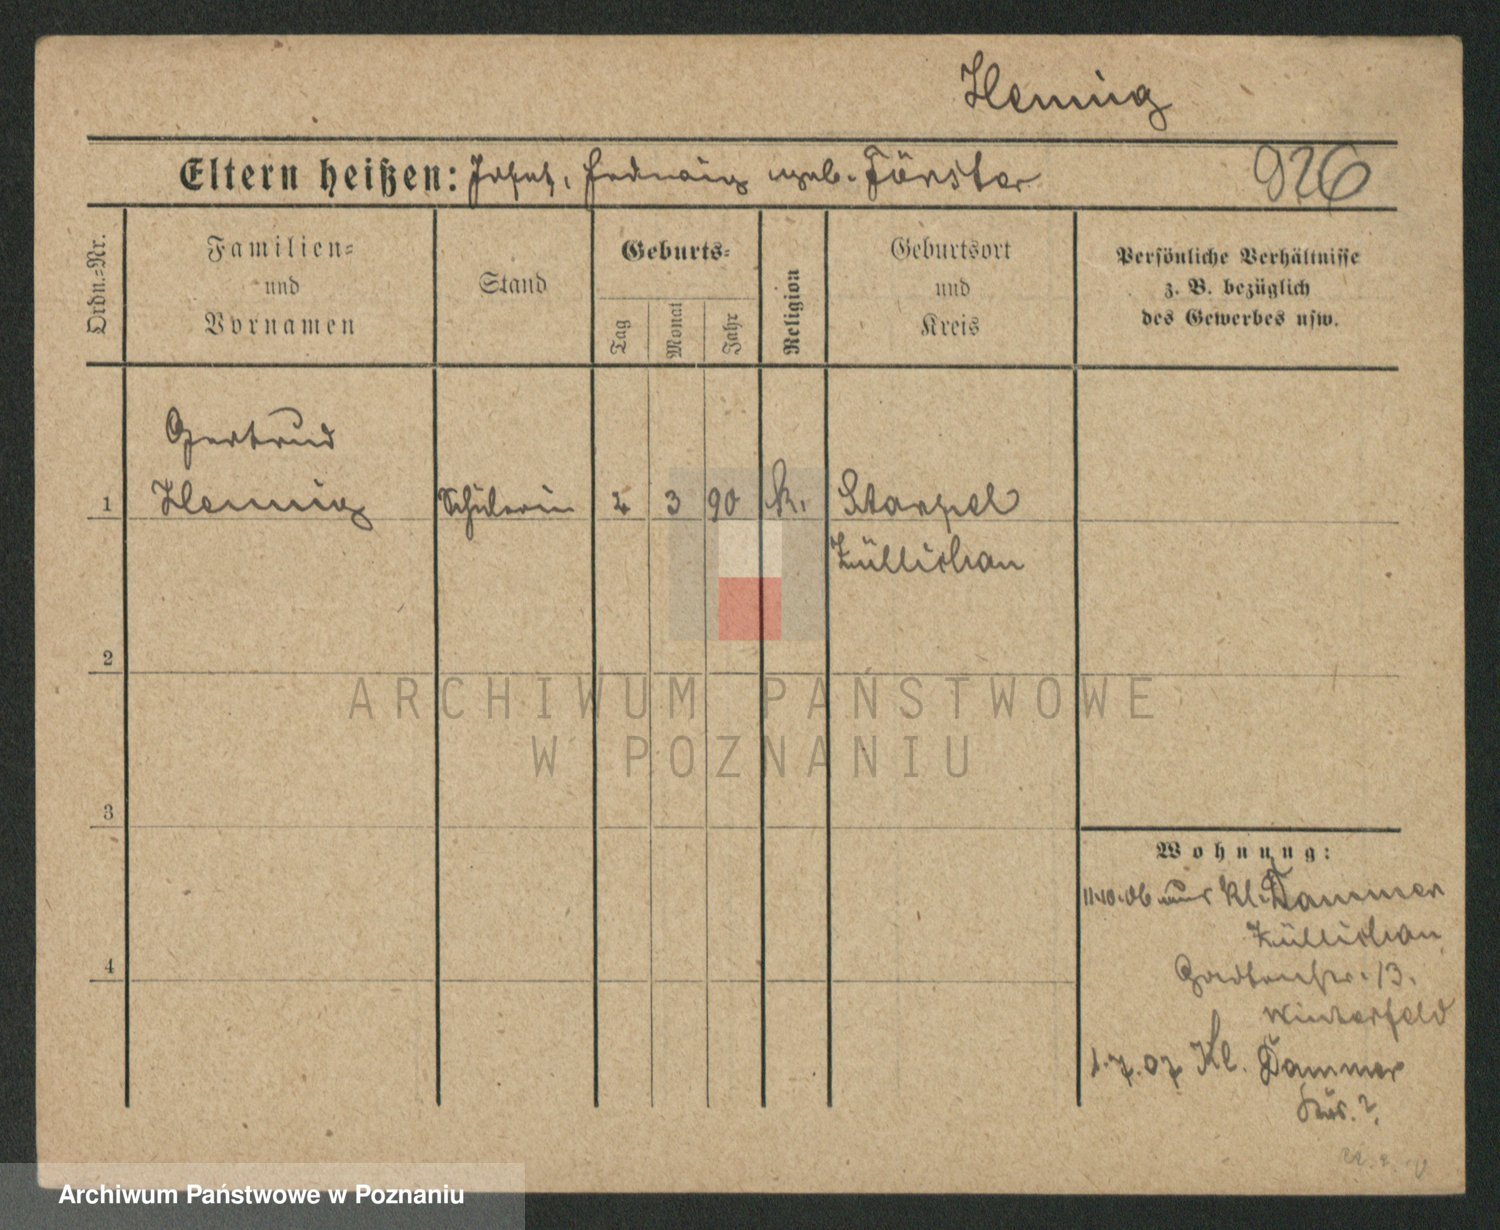 Hennig
Eltern heißen: Josef, Hedwig geb. Förster
926
Ordn.=Nr.
Familien=
und
Vornamen
Stand
Geburts=
Tag
Monat
Jahr
Religion
Geburtsort
und
Kreis
Persönliche Verhältnisse
z. B. bezüglich
des Gewerbes usw.
Gertrud
1 Hennig Schülerin 2 3 90 k. Starpel
Züllichau
2
3
4
Wohnung:
11.10.06 aus Kl. Dammer
Züllichau
Gartenstr. 13.
Winterfeld
1.7.07 Kl. Dammer
ARCHIWUM PAŃSTWOWE
W POZNANIU
Archiwum Państwowe w Poznaniu